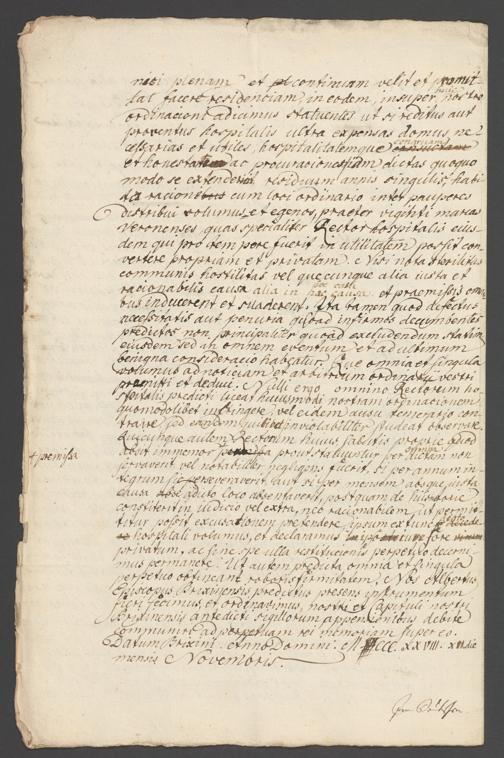 nisi plenam et continuam velit et promit-
tat facere residenciam, in eodem, insuper huic nostre
ordinacioni adicimus statuentes ut si reditus aut
proventus hospitalis ultra expensas domus ne-
cessarias et utiles, hospitalitatemque congruam
et honestatem ac procurationes iam dictas quoquo
modo se extenderint residuum annis singulis, habi-
ta racione cum loci ordinario inter pauperes
distribui volumus, et egenos, praeter viginti marcas
Veronenses quas specialiter Rector hospitalis eius-
dem qui pro tempore fuerit in utilitatem possit con-
vertere propriam et privatam. Nisi nota sterilitas
communis hostilitas vel quecunque alia iusta et
racionabilis causa alia in hac causa et praemissis om-
bus inducerent et suaderent. Ita tamen quod defectus
necessitatis aut penuria quoad infirmos decumbentes
predictos non principaliter quoad excludendum statim
eiusdem sed in omnem eventum et ad ultimum
benigna consideracio habeatur. Que omnia et singula
volumus ad noticiam et arbitrium ordinarii vestri
premitti et deduci. Nulli ergo omnino Rectorum ho-
spitalis predicti liceat huiusmodi nostram ordinacionem,
quomodolibet infringere, vel eidem ausu temerario con-
traire, sed eandem inviolabiliter studeat observare
Quicunque autem Rectorum huius salutis proprie quod
absit immemor prout statuuntur per omnia non
+ premissa
servaverit vel notabiliter negligens fuerit, si per annum in-
tegrum sic perseveraverit. Aut si per mensem absque iusta
causa a dicto loco absentaverit, postquam de
constiterit in iudicio vel extra, nec racionabilem, ut permit-
titur possit excusationem pretendere, ipsum extunc
hospitali volumus, et declaramus ipso iure fore
privatum, ac sine spe ulla restitucionis perpetuo decerni-
mus permanere. Ut autem predicta omnia et singula
perpetuo obtineant roboris firmitatem, Nos Albertus
Episcopus Brixinensis predictus presens instrumentum
fieri fecimus, et ordinavimus, nostri et Capituli nostri
Brixinensis antedicti sigillorum appensionibus debite
communiri ad perpetuam rei memoriam super eo.
Datum Brixine. Anno Domini. M CCC. XXVIII. XVI. die
mensis Novembris.